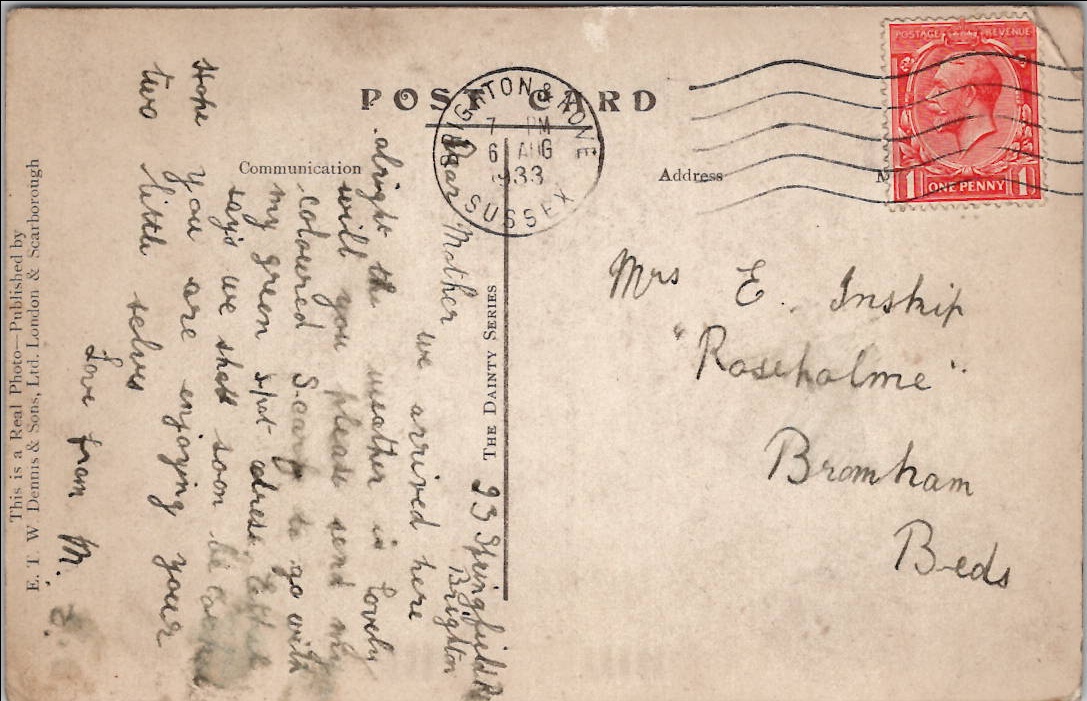 POST CARD
Communication
Address
BRIGHTON & HOVE
7 PM
6 AUG
1933
SUSSEX
POSTAGE REVENUE
1 ONE PENNY 1
This is a Real Photo—Published by
E. T. W Dennis & Sons, Ltd. London & Scarborough
THE DAINTY SERIES
23 Springfield
Brighton
Dear Mother
we arrived here
alright the weather is lovely
will you please send my
coloured Scarf to go with
my green spot dress
says we shall soon be
Hope you are enjoying your
two little selves
Love from M.
Mrs E. Inskip
"Roseholme"
Bromham
Beds